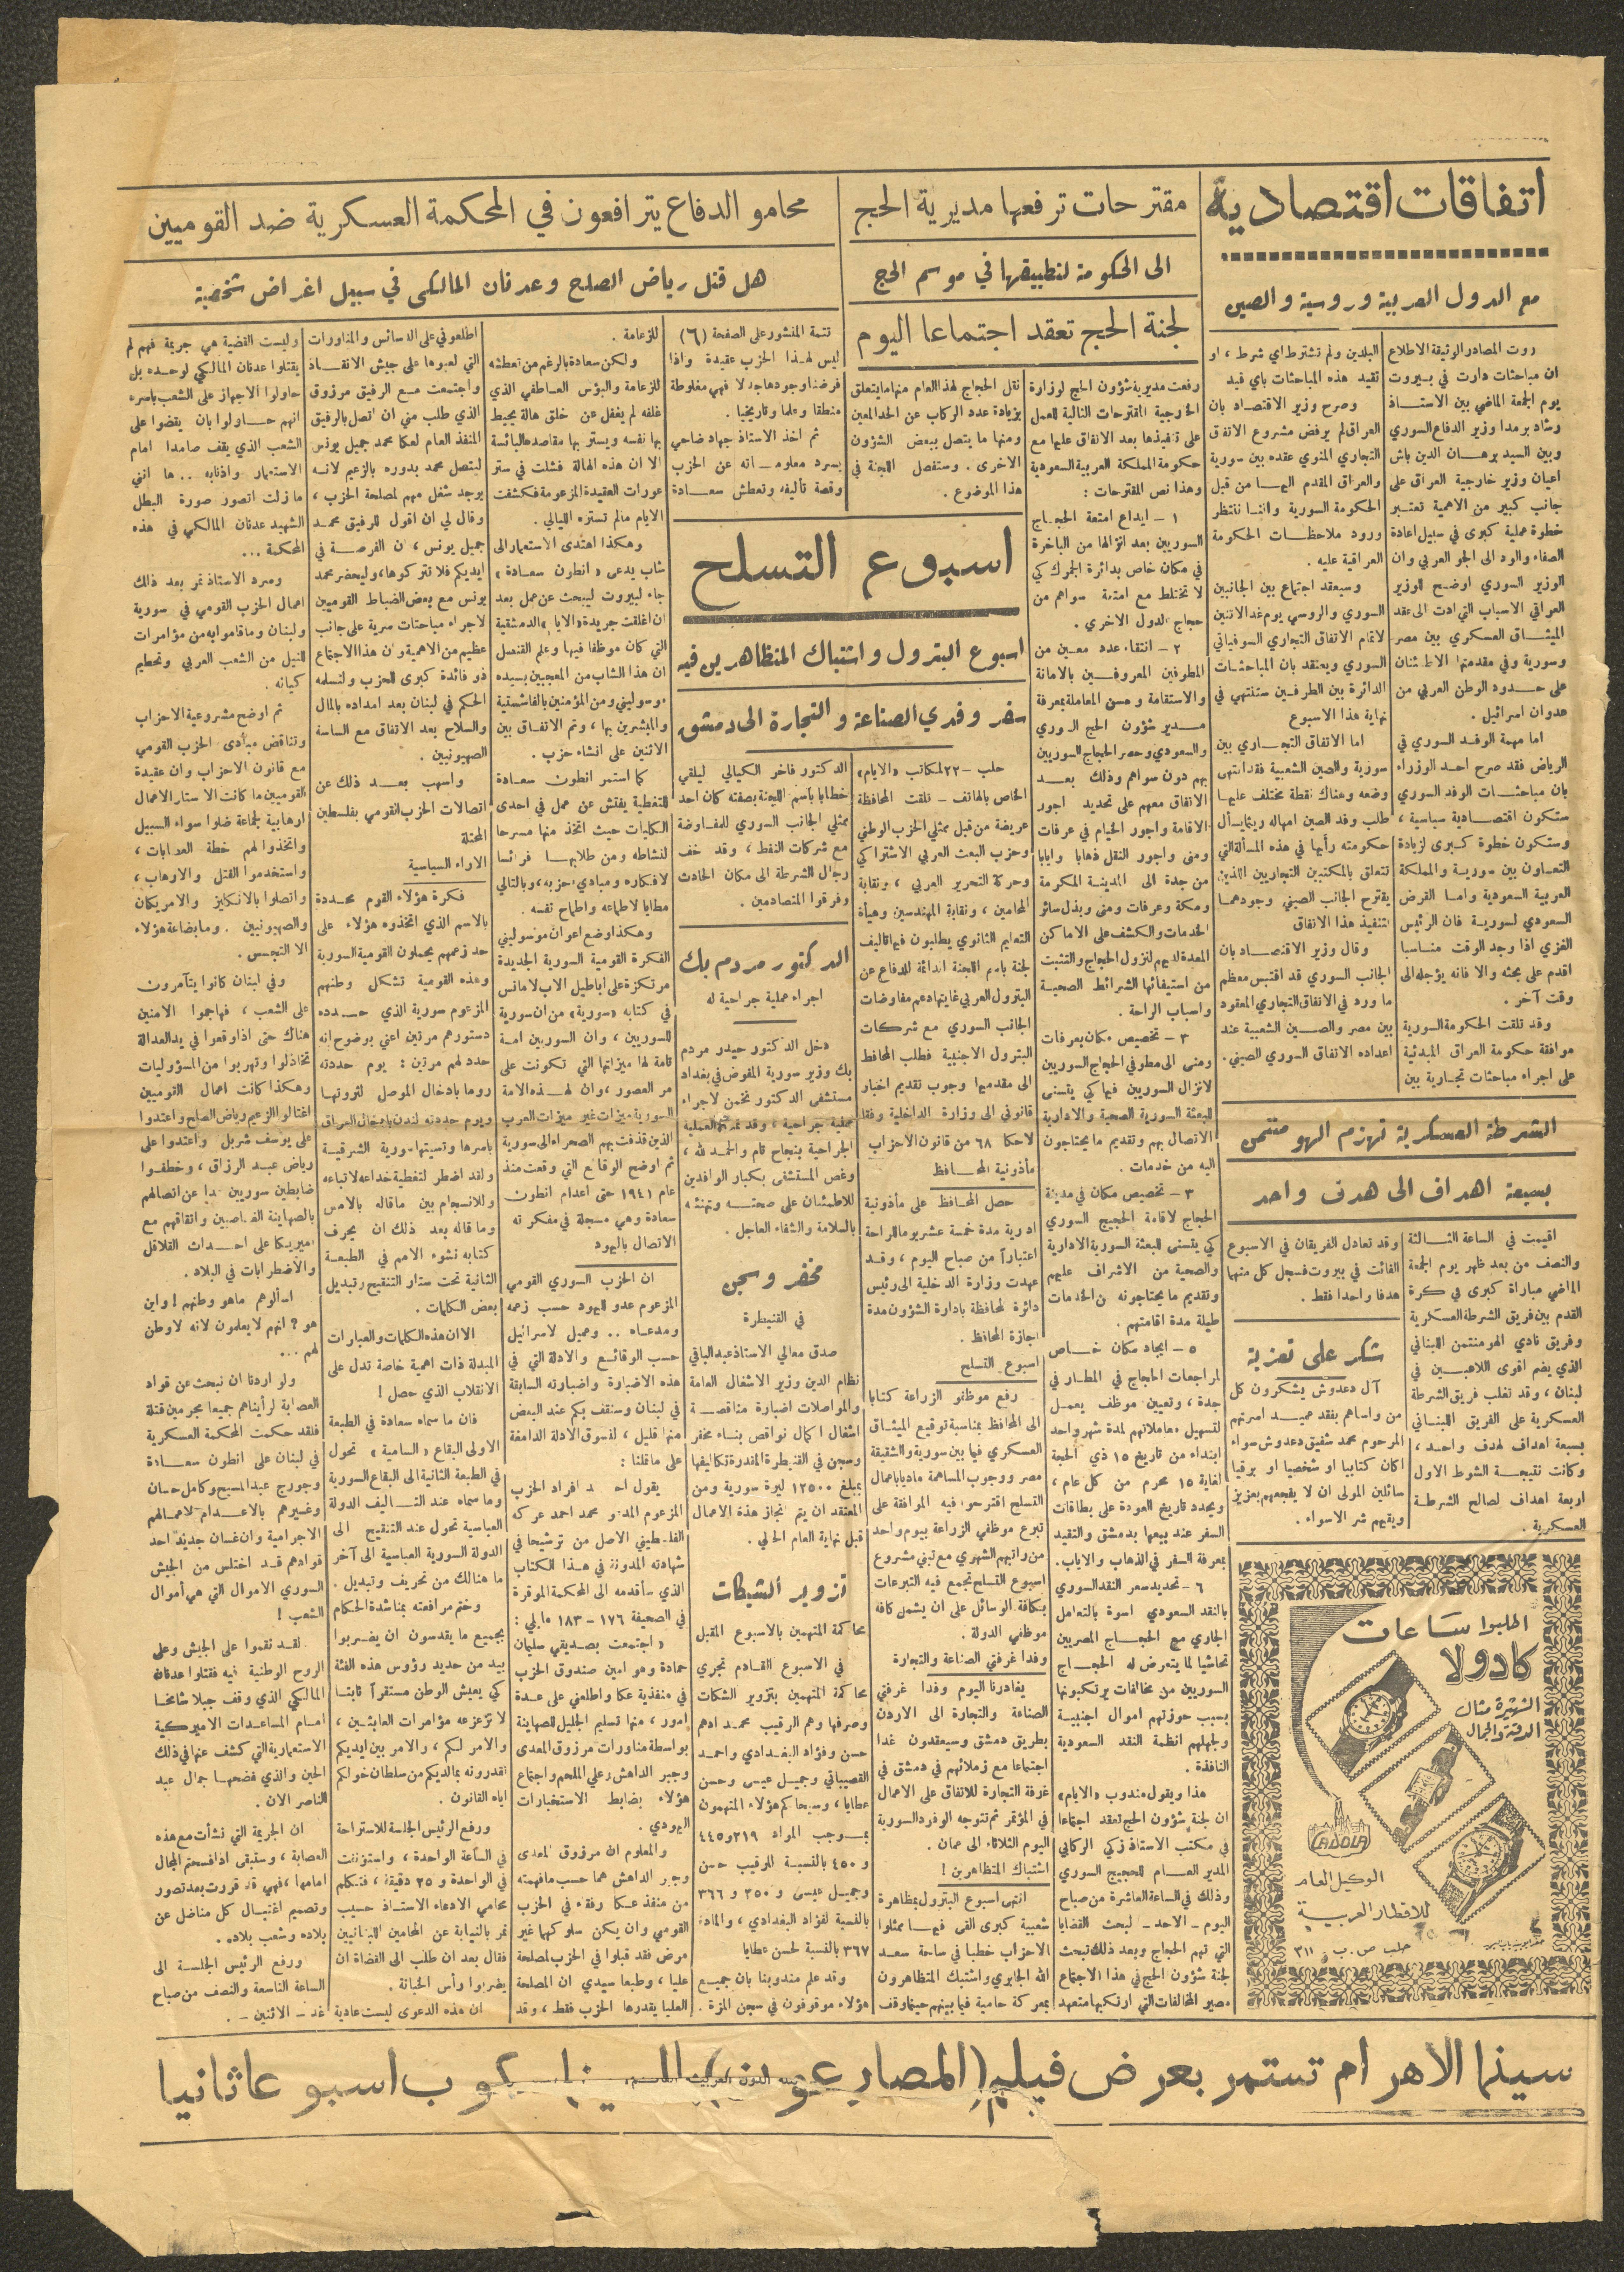 اتفاقات اقتصادية
مع الدول العربية وروسية والصين
روت المصادر الوثيقة الاطلاع
ان مباحثات دارت في بيروت
يوم الجمعة الماضي بين الاستاذ
رشاد برمدا وزير الدفاع السوري
وبين السيد برهان الدين باش
اعيان وزير خارجية العراق على
جانب كبير من الاهمية تعتبر
خطوة عملية كبرى في سبيل اعادة
الصفاء والود الى الجو العربي وان
الوزير السوري اوضح للوزير
العراقي الاسباب التي ادت الى عقد
الميثاق العسكري بين مصر
وسورية وفي مقدمتها الاطمئنان
على حدود الوطن العربي من
عدوان اسرائيل .
اما مهمة الوفد السوري في
الرياض فقد صرح احد الوزراء
بان مباحثات الوفد السوري
ستكون اقتصادية سياسية ،
وستكون خطوة كبرى لزيادة
التعاون بين سورية والمملكة
العربية السعودية واما القرض
السعودي لسورية فان الرئيس
الغزي اذا وجد الوقت مناسبا
اقدم على بحثه والا فانه يؤجله الى
وقت آخر .
وقد تلقت الحكومة السورية
موافقة حكومة العراق المبدئية
على اجراء مباحثات تجارية بين
البلدين ولم تشترط اي شرط ، او
تقيد هذه المباحثات باي قيد
وصرح وزير الاقتصاد بان
العراق لم يرفض مشروع الاتفق
التجاري المنوي عقده بين سورية
والعراق المقدم اليها من قبل
الحكومة السورية واننا ننتظر
ورود ملاحظات الحكومة
العراقية عليه .
وسيعقد اجتماع بين الجانبين
السوري والروسي يوم غد الاثنين
لاتمام الاتفاق التجاري السوفياتي
السوري ويعتقد بان المباحثات
الدائرة بين الطرفين ستنتهي في
نهاية هذا الاسبوع
اما الاتفاق التجاري بين
سورية والصين الشعبية فقد انتهى
وضعه وهناك نقطة مختلف عليها
طلب وفد الصين امهاله ريثما يسأل
حكومته رأيها في هذه المسألة التي
تتعلق بالمكتبين التجاريين اللذين
يقترح الجانب الصيني وجودهما
لتنفيذ هذا الاتفاق
وقال وزير الاقتصاد بان
الجانب السوري قد اقتبس معظم
ما ورد في الاتفاق التجاري المعقود
بين مصر والصين الشعبية عند
اعداده الاتفاق السوري الصيني .
الشرطة العسكرية تهزم الهومنتمن
بسبعة اهداف الى هدف واحد
اقيمت في الساعة الثالثة
والنصف من بعد ظهر يوم الجمعة
الماضي مباراة كبرى في كرة
القدم بين فريق الشرطة العسكرية
وفريق نادي الهومنتمن اللبناني
الذي يضم اقوى اللاعبين في
لبنان ، وقد تغلب فريق الشرطة
العسكرية على الفريق اللبناني
بسبعة اهداف لهدف واحد ،
وكانت نتيجة الشوط الاول
اربعة اهداف لصالح الشرطة
العسكرية .
وقد تعادل الفريقان في الاسبوع
الفائت في بيروت فسجل كل منهما
هدفا واحدا فقط .
شكر على تعزية
آل دعدوش يشكرون كل
من واساهم بفقد عميد اسرتهم
المرحوم محمد شفيق دعدوش سواء
اكان كتابيا او شخصيا او برقيا
سائلين المولى ان لا يفجعهم بعزيز
ويقيهم شر الاسواء .
اطلبوا ساعات
كادولا
الشهيرة مثال
الدقة والجمال
CADOLA
الوكيل العام
للاقطار العربية
حلب ص.ب ٣١١
مقترحات ترفعها مديرية الحج
الى الحكومة لتطبيقها في موسم الحج
لجنة الحج تعقد اجتماعا اليوم
رفعت مديرية شؤون الحج لوزارة
الخارجية المقترحات التالية للعمل
على تنفيذها بعد الاتفاق عليها مع
حكومة المملكة العربية السعودية
وهذا نص المقترحات :
١ - ايداع امتعة الحجاج
السوريين بعد انزالها من الباخرة
في مكان خاص بدائرة الجمرك كي
لا تختلط مع امتعة سواهم من
حجاج الدول الاخرى .
٢ - انتقاء عدد معين من
المطوفين المعروفين بالامانة
والاستقامة وحسن المعاملة بمعرفة
مدير شؤون الحج السوري
والسعودي وحصر الحجاج السوريين
بهم دون سواهم وذلك بعد
الاتفاق معهم على تحديد اجور
الاقامة واجور الخيام في عرفات
ومنى واجور النقل ذهابا وايابا
من جدة الى المدينة المكرمة
ومكة وعرفات ومنى وبذل سائر
الخدمات والكشف على الاماكن
المعدة لديهم لنزول الحجاج والتثبت
من استيفائها الشرائط الصحية
واسباب الراحة .
٣ - تخصيص مكان بعرفات
ومنى الى مطوفي الحجاج السوريين
لانزال السوريين فيها كي يتسنى
للبعثة السورية الصحية والادارية
الاتصال بهم وتقديم ما يحتاجون
اليه من خدمات .
٣ - تخصيص مكان في مدينة
الحجاج لاقامة الحجيج السوري
كي يتسنى للبعثة السورية الادارية
والصحية من الاشراف عليهم
وتقديم ما يحتاجونه من الخدمات
طيلة مدة اقامتهم .
٥ - ايجاد مكان خاص
لمراجعات الحجاج في المطار في
جدة ، وتعيين موظف يعمل
لتسهيل معاملاتهم لمدة شهر واحد
ابتداء من تاريخ ١٥ ذي الحجة
لغاية ١٥ محرم من كل عام ،
ويحدد تاريخ العودة على بطاقات
السفر عند بيعها بدمشق والتقيد
بمعرفة السفر في الذهاب والاياب .
٦ - تحديد سعر النقد السوري
بالنقد السعودي اسوة بالتعامل
الجاري مع الحجاج المصريين
تحاشيا لما يتعرض له الحجاج
السوريين من مخالفات يرتكبونها
بسبب حوزتهم اموال اجنبية
ولجهلهم انظمة النقد السعودية
النافذة .
هذا ويقول مندوب «الايام»
ان لجنة شؤون الحج تعقد اجتماعا
في مكتب الاستاذ زكي الركابي
المدير العام للحجيج السوري
وذلك في الساعة العاشرة من صباح
اليوم - الاحد - لبحث القضايا
التي تهم الحجاج وبعد ذلك تبحث
لجنة شؤون الحج في هذا الاجتماع
مصير المخالفات التي ارتكبها متعهد
نقل الحجاج لهذا العام منها ما يتعلق
بزيادة عدد الركاب عن الحد المعين
ومنها ما يتصل ببعض الشؤون
الاخرى . وستفصل اللجنة في
هذا الموضوع .
اسبوع التسلح
اسبوع البترول واشتباك المتظاهرين فيه
سفر وفدي الصناعة والتجارة الى دمشق
حلب - ٢٢ لمكاتب «الايام»
الخاص بالهاتف - تلقت المحافظة
عريضة من قبل ممثلي الحزب الوطني
وحزب البعث العربي الاشتراكي
وحركة التحرير العربي ، ونقابة
المحامين ، ونقابة المهندسين وهيأة
التعليم الثانوي يطلبون فيها تأليف
لجنة باسم اللجنة الدائمة للدفاع عن
البترول العربي غايتها دعم مفاوضات
الجانب السوري مع شركات
البترول الاجنبية فطلب المحافظ
الى مقدميها وجوب تقديم اخبار
قانوني الى وزارة الداخلية وفقا
لاحكا ٦٨ من قانون الاحزاب
مأذونية المحافظ
حصل المحافظ على مأذونية
ادرية مدة خمسة عشر يوما للراحة
اعتبارا من صباح اليوم ، وقد
عهدت وزارة الدخلية الى رئيس
دائرة المحافظة بادارة الشؤون مدة
اجازة المحافظ .
اسبوع التسلح
رفع موظفو الزراعة كتابا
الى المحافظ بمناسبة توقيع الميثاق
العسكري فيما بين سورية والشقيقة
مصر ووجوب المساهمة ماديا باعمال
التسلح اقترحوا فيه الموافقة على
تبرع موظفي الزراعة بيوم واحد
من راتبهم الشهري مع تبني مشروع
اسبوع التسلح تجمع فيه التبرعات
بكافة الوسائل على ان يشمل كافة
موظفي الدولة .
وفدا غرفتي الصناعة والتجارة
يغادرنا اليوم وفدا غرفتي
الصناعة والتجارة الى الاردن
بطريق دمشق وسيعقدون غدا
اجتماعا مع زملائهم في دمشق في
غرفة التجارة للاتفاق على الاعمال
في المؤتمر ثم تتوجه الوفود السورية
اليوم الثلاثاء الى عمان .
اشتباك المتظاهرين !
انتهى اسبوع البترول بمظاهرة
شعبية كبرى القى فيها ممثلوا
الاحزاب خطبا في ساحة سعد
الله الجابري واشتبك المتظاهرون
بمعركة حامية فيما بينهم حينما وقف
الدكتور فاخر الكيالي ليلقي
خطابا باسم اللجنة بصفته كان احد
ممثلي الجانب السوري للمفاوضة
مع شركات النفط ، وقد خف
رجال الشرطة الى مكان الحادث
وفرقوا المتصادمين .
الدكتور مردم بك
اجراء عملية جراحية له
دخل الدكتور حيدر مردم
بك وزير سورية المفوض في بغداد
مستشفى الدكتور نخمن لاجراء
عملية جراحية ، وقد تمت العملية
الجراحية بنجاح تام والحمد لله ،
وغص المستشفى بكبار الوافدين
للاطمئنان على صحته وتهنئته
بالسلامة والشفاء العاجل .
مخفر وسجن
في القنيطرة
صدق معالي الاستاذ عبد الباقي
نظام الدين وزير الاشغال العامة
والمواصلات اضبارة مناقصة
اشغال اكمال نواقص بناء مخفر
وسجن في القنيطرة المقدرة تكاليفها
بمبلغ ١٢٥٠٠ ليرة سورية ومن
المعتقد ان يتم انجاز هذه الاعمال
قبل نهاية العام الحالي .
تزوير الشيكات
محاكمة المتهمين بالاسبوع المقبل
في الاسبوع القادم تجري
محاكمة المتهمين بتزوير الشكات
وصرفها وهم الرقيب محمد ادهم
حسن وفؤاد البغدادي واحمد
القصيباتي وجميل عيسى وحسن
عطايا ، وسيحاكم هؤلاء المتهمون
بموجب المواد ٢١٩ و٤٤٥
و ٤٥٠ بالنسبة للرقيب حسن
وجميل عيسى و ٣٥٠ و ٣٦٦
بالنسبة لفؤاد البغدادي ، والمادة
٣٦٧ بالنسبة لحسن عطايا
وقد علم مندوبنا بان جميع
هؤلاء موقوفون في سجن المزة .
محامو الدفاع يترافعون في المحكمة العسكرية ضد القوميين
هل قتل رياض الصلح وعدنان المالكي في سبيل اغراض شخصية
تتمة المنشور على الصفحة (٦)
ليس لهذا الحزب عقيدة واذا
فرضنا وجودها جدلا فهي مغلوطة
منطقا وعلما وتاريخيا .
ثم اخذ الاستاذ جهاد ضاحي
بسرد معلوماته عن الحزب
وقصة تأليفه وتعطش سعادة
للزعامة .
ولكن سعادة بالرغم من تعطشه
للزعامة والبؤس العاطفي الذي
غلفه لم يغفل عن خلق هالة يحيط
بها نفسه ويستر بها مقاصده البائسة
الا ان هذه الهالة فشلت في ستر
عورات العقيدة المزعومة فكشفت
الايام مالم تستره الليالي .
وهكذا اهتدى الاستعمار الى
شاب يدعى « انطون سعادة »
جاء لبيروت ليبحث عن عمل بعد
ان اغلقت جريدة «الايام» الدمشقية
التي كان موظفا فيها وعلم القنصل
ان هذا الشاب من المعجبين بسيده
موسوليني ومن المؤمنين بالفاشستية
والمبشرين بها ، وتم الاتفاق بين
الاثنين على انشاء حزب .
كما استمر انطون سعادة
للتغطية يفتش عن عمل في احدى
الكليات حيث اتخذ منها مسرحا
لنشاطه ومن طلابها فرائسا
لافكاره ومبادىء حزبه ، وبالتالي
مطايا لاطماعه واطماح نفسه .
وهكذا وضع اعوان موسوليني
الفكرة القومية السورية الجديدة
مرتكزة على اباطيل الاب لامانس
في كتابه «سورية» من ان سورية
للسوريين ، وان السوريين امة
تامة لها ميزاتها التي تكونت على
مر العصور ، وان لهذه الامة
السورية ميزات غير ميزات العرب
الذين قذفت بهم الصحراء الى سورية
ثم اوضح الوقائع التي وقعت منذ
عام ١٩٤١ حتى اعدام انطون
سعادة وهي مسجلة في مفكرته
الاتصال باليهود
ان الحزب السوري القومي
المزعوم عدو لليهود حسب زعمه
ومدعاه .. وعميل لاسرائيل
حسب الوقائع والادلة التي في
هذه الاضبارة واضبارته السابقة
في لبنان وسنقف بكم عند البعض
منها قليل ، لنسوق الادلة الدامغة
على ما قلنا :
يقول احد افراد الحزب
المزعوم المدعو محمد احمد عركه
الفلسطيني الاصل من ترشيحا في
شهادته المدونة في هذا الكتاب
الذي سأقدمه الى المحكمة الموقرة
في الصحيفة ١٧٦ - ١٨٣ مايلي :
« اجتمعت بصديقي سليمان
حمادة وهو امين صندوق الحزب
في منفذية عكا واطلعني على عدة
امور ، منها تسليم الجليل للصهاينة
بواسطة مناورات مرزوق المعدى
وجبر الداهش وعلي الملحم واجتماع
هؤلاء بضابط الاستخبارات
اليهودي .
والمعلوم ان مرزوق المعدى
وجبر الداهش هما حسب ما فهمته
من منفذ عكا رفقاء في الحزب
القومي وان يكن سلوكهما غير
مرض فقد قبلوا في الحزب لمصلحة
عليا ، وطبعا سيدي ان المصلحة
العليا يقدرها الحزب فقط ، وقد
اطلعوني على الدسائس والمناورات
التي لعبوها على جيش الانقاذ
واجتمعت مع الرفيق مرزوق
الذي طلب مني ان اتصل بالرفيق
المنفذ العام لعكا محمد جميل يونس
ليتصل محمد بدوره بالزعيم لانه
يوجد شغل مهم لمصلحة الحزب ،
وقال لي ان اقول للرفيق محمد
جميل يونس ، ان الفرصة في
ايديكم فلا تتركوها ، وليحضر محمد
يونس مع بعض الضباط القوميين
لاجراء مباحثات سرية على جانب
عظيم من الاهمية وان هذا الاجتماع
ذو فائدة كبرى للحزب ولتسلمه
الحكم في لبنان بعد امداده بالمال
والسلاح بعد الاتفاق مع الساسة
الصهيونيين .
واسهب بعد ذلك عن
اتصالات الحزب القومي بفلسطين
المحتلة
الاراء السياسية
فكرة هؤلاء القوم محددة
بالاسم الذي اتخذوه هؤلاء على
حد زعمهم يحملون القومية السورية
وهذه القومية تشكل وطنهم
المزعوم سورية الذي حدده
دستورهم مرتين اعني بوضوح انه
حدد لهم مرتين : يوم حددته
روما بادخال الموصل لثروتها
ويوم حددته لندن بادخال العراق
باسرها ونسبتها سورية الشرقية
ولقد اضطر لتغطية خداعه لاتباعه
وللانسجام بين ماقاله بالامس
وما قاله بعد ذلك ان يحرف
كتابه نشوء الامم في الطبعة
الثانية تحت ستار التنقيح وتبديل
بعض الكلمات .
الا ان هذه الكلمات والعبارات
المبدلة ذات اهمية خاصة تدل على
الانقلاب الذي حصل !
فان ما سماه سعادة في الطبعة
الاولى البقاع « السامية » تحول
في الطبعة الثانية الى البقاع السورية
وما سماه عند التأليف الدولة
العباسية تحول عند التنقيح الى
الدولة السورية العباسية الى آخر
ما هنالك من تحريف وتبديل .
وختم مرافعته بمناشدة الحكام
بجميع ما يقدسون ان يضربوا
بيد من حديد رؤوس هذه الفئة
كي يعيش الوطن مستقرا ثابتا
لا تزعزعه مؤامرات العابثين ،
والامر لكم ، والامر بين ايديكم
تقدرونه بمالديكم من سلطان خولكم
اياه القانون .
ورفع الرئيس الجلسة للاستراحة
في الساعة الواحدة ، واستؤنفت
في الواحدة و ٣٥ دقيقة ، فتكلم
محامي الادعاء الاستاذ حسيب
نمر بالنيابة عن المحامين اللبنانيين
فقال بعد ان طلب الى القضاة ان
يضربوا رأس الخيانة .
ان هذه الدعوى ليست عادية
وليست القضية هي جريمة فهم لم
يقتلوا عدنان المالكي لوحده بل
حاولوا الاجهاز على الشعب باسره
انهم حاولوا بان يقضوا على
الشعب الذي يقف صامدا امام
الاستعمار واذنابه .. ها انني
مازلت اتصور صورة البطل
الشهيد عدنان المالكي في هذه
المحكمة ...
وسرد الاستاذ نمر بعد ذلك
اعمال الحزب القومي في سورية
ولبنان وما قاموا به من مؤامرات
للنيل من الشعب العربي وتحطيم
كيانه .
ثم اوضح مشروعية الاحزاب
وتناقض مبادئ الحزب القومي
مع قانون الاحزاب وان عقيدة
القوميين ما كانت الا ستار الاعمال
ارهابية لجماعة ضلوا سواء السبيل
واتخذوا لهم خطة العصابات ،
واستخدموا القتل والارهاب ،
واتصلوا بالانكليز والامريكان
والصهيونيين . وما بضاعة هؤلاء
الا التجسس .
وفي لبنان كانوا يتآمرون
على الشعب ، فهاجموا الامنين
هناك حتى اذا وقعوا في يد العدالة
تخاذلوا وتهربوا من المسؤوليات
وهكذا كانت اعمال القوميين
اغتالوا الزعيم رياض الصلح واعتدوا
على يوسف شربل واعتدوا على
رياض عبد الرزاق ، وخطفوا
ضابطين سوريين عدا عن اتصالهم
بالصهاينة الغاصبين واتفاقهم مع
اميريكا على احداث القلاقل
والاضطرابات في البلاد .
اسألوهم ماهو وطنهم ! واين
هو ؟ انهم لا يعلمون لانه لا وطن
لهم ...
ولو اردنا ان نبحث عن قواد
العصابة لرأيناهم جميعا مجرمين قتلة
فلقد حكمت المحكمة العسكرية
في لبنان على انطون سعادة
وجورج عبد المسيح وكامل حسان
وغيرهم بالاعدام لاعمالهم
الاجرامية وان غسان جديد احد
قوادهم قد اختلس من الجيش
السوري الاموال التي هي أموال
الشعب !
لقد نقموا على الجيش وعلى
الروح الوطنية فيه فقتلوا عدنان
المالكي الذي وقف جبلا شامخا
امام المساعدات الاميركية
الاستعمارية التي كشف عنها في ذلك
الحين والذي فضحها جمال عبد
الناصر الان .
ان الجريمة التي نشأت مع هذه
العصابة ، وستبقى اذا فسحتم المجال
امامها ، فهي قد قررت بعد تصور
وتصميم اغتيال كل مناضل عن
بلاده وشعب بلاده .
ورفع الرئيس الجلسة الى
الساعة التاسعة والنصف من صباح
غد - الاثنين - .
سينما الاهرام تستمر بعرض فيلم (المصارعون) بالسينما سكوب اسبوعا ثانيا